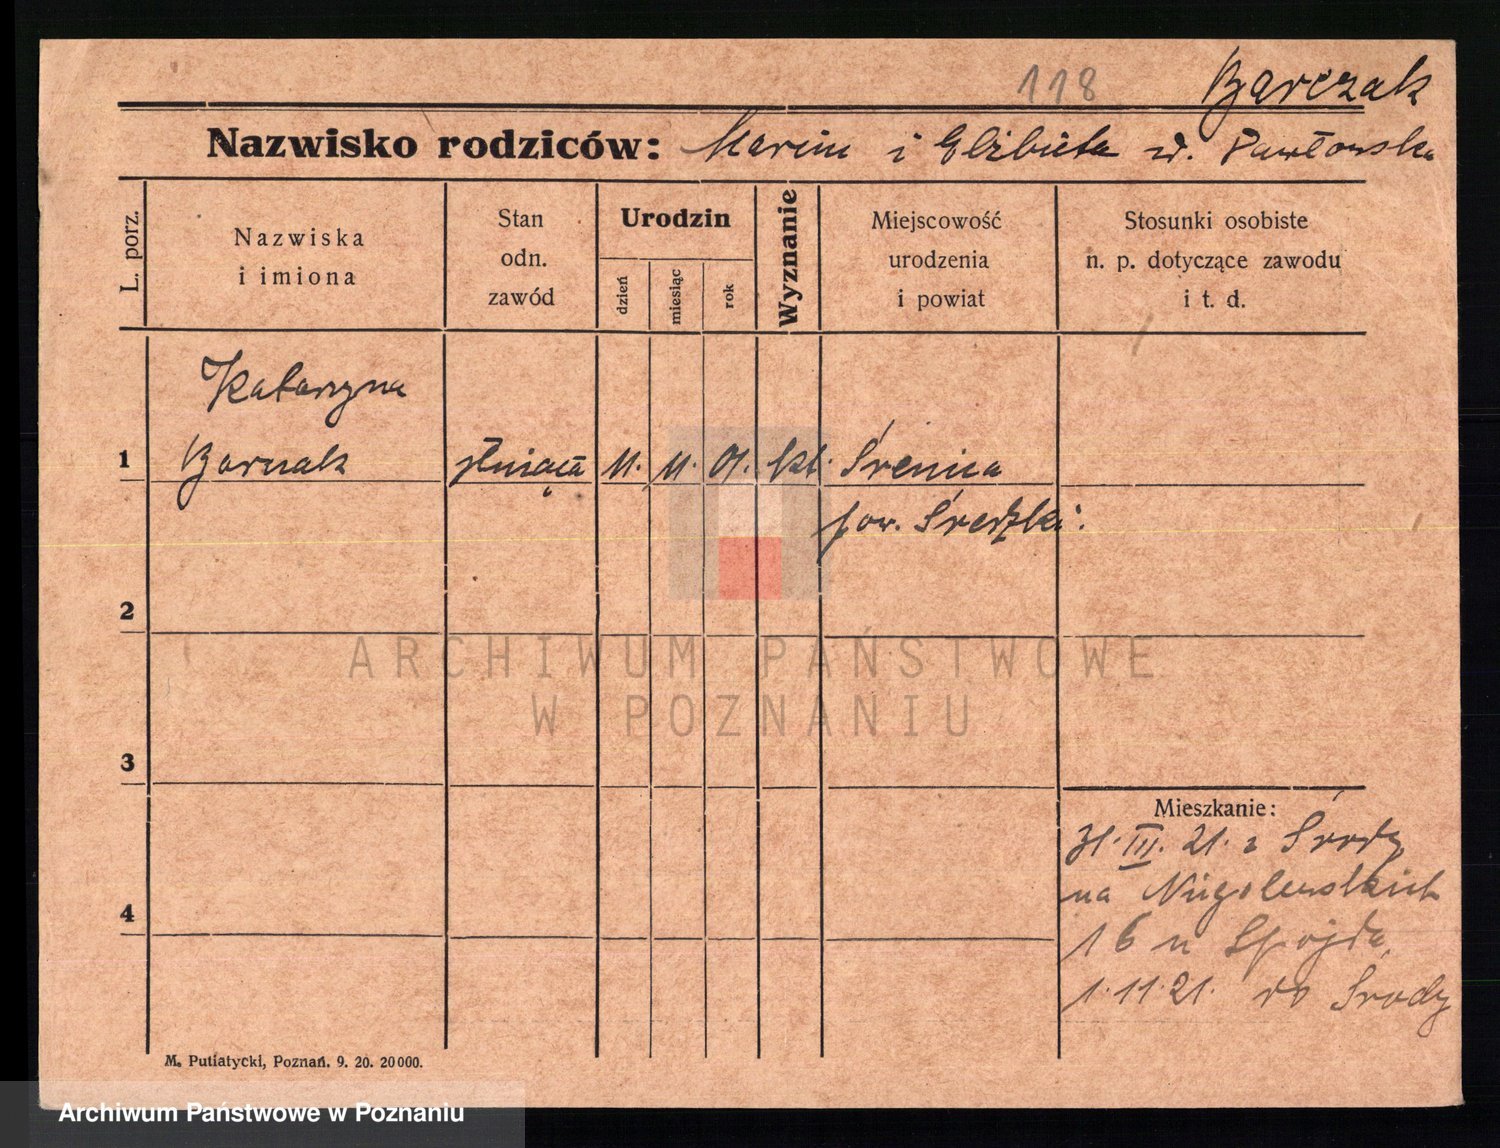 118 Barczak
Nazwisko rodziców: Marcin i Elżbieta Pawłowska
L. porz.
Nazwiska
i imiona
Stan
odn.
zawód
Urodzin
dzień
miesiąc
rok
Wyznanie
Miejscowość
urodzenia
i powiat
Stosunki osobiste
n. p. dotyczące zawodu
i t. d.
Katarzyna
1 służąca 11. 11. 01. kt. Śrenica
pow. Średzki.
2
ARCHIWUM PAŃSTWOWE
W POZNANIU
3
Mieszkanie:
31. III. 21. z Środy
na
4
16 u
1.11.21. do Środy
M. Putiatycki, Poznań. 9. 20. 20000.
Archiwum Państwowe w Poznaniu